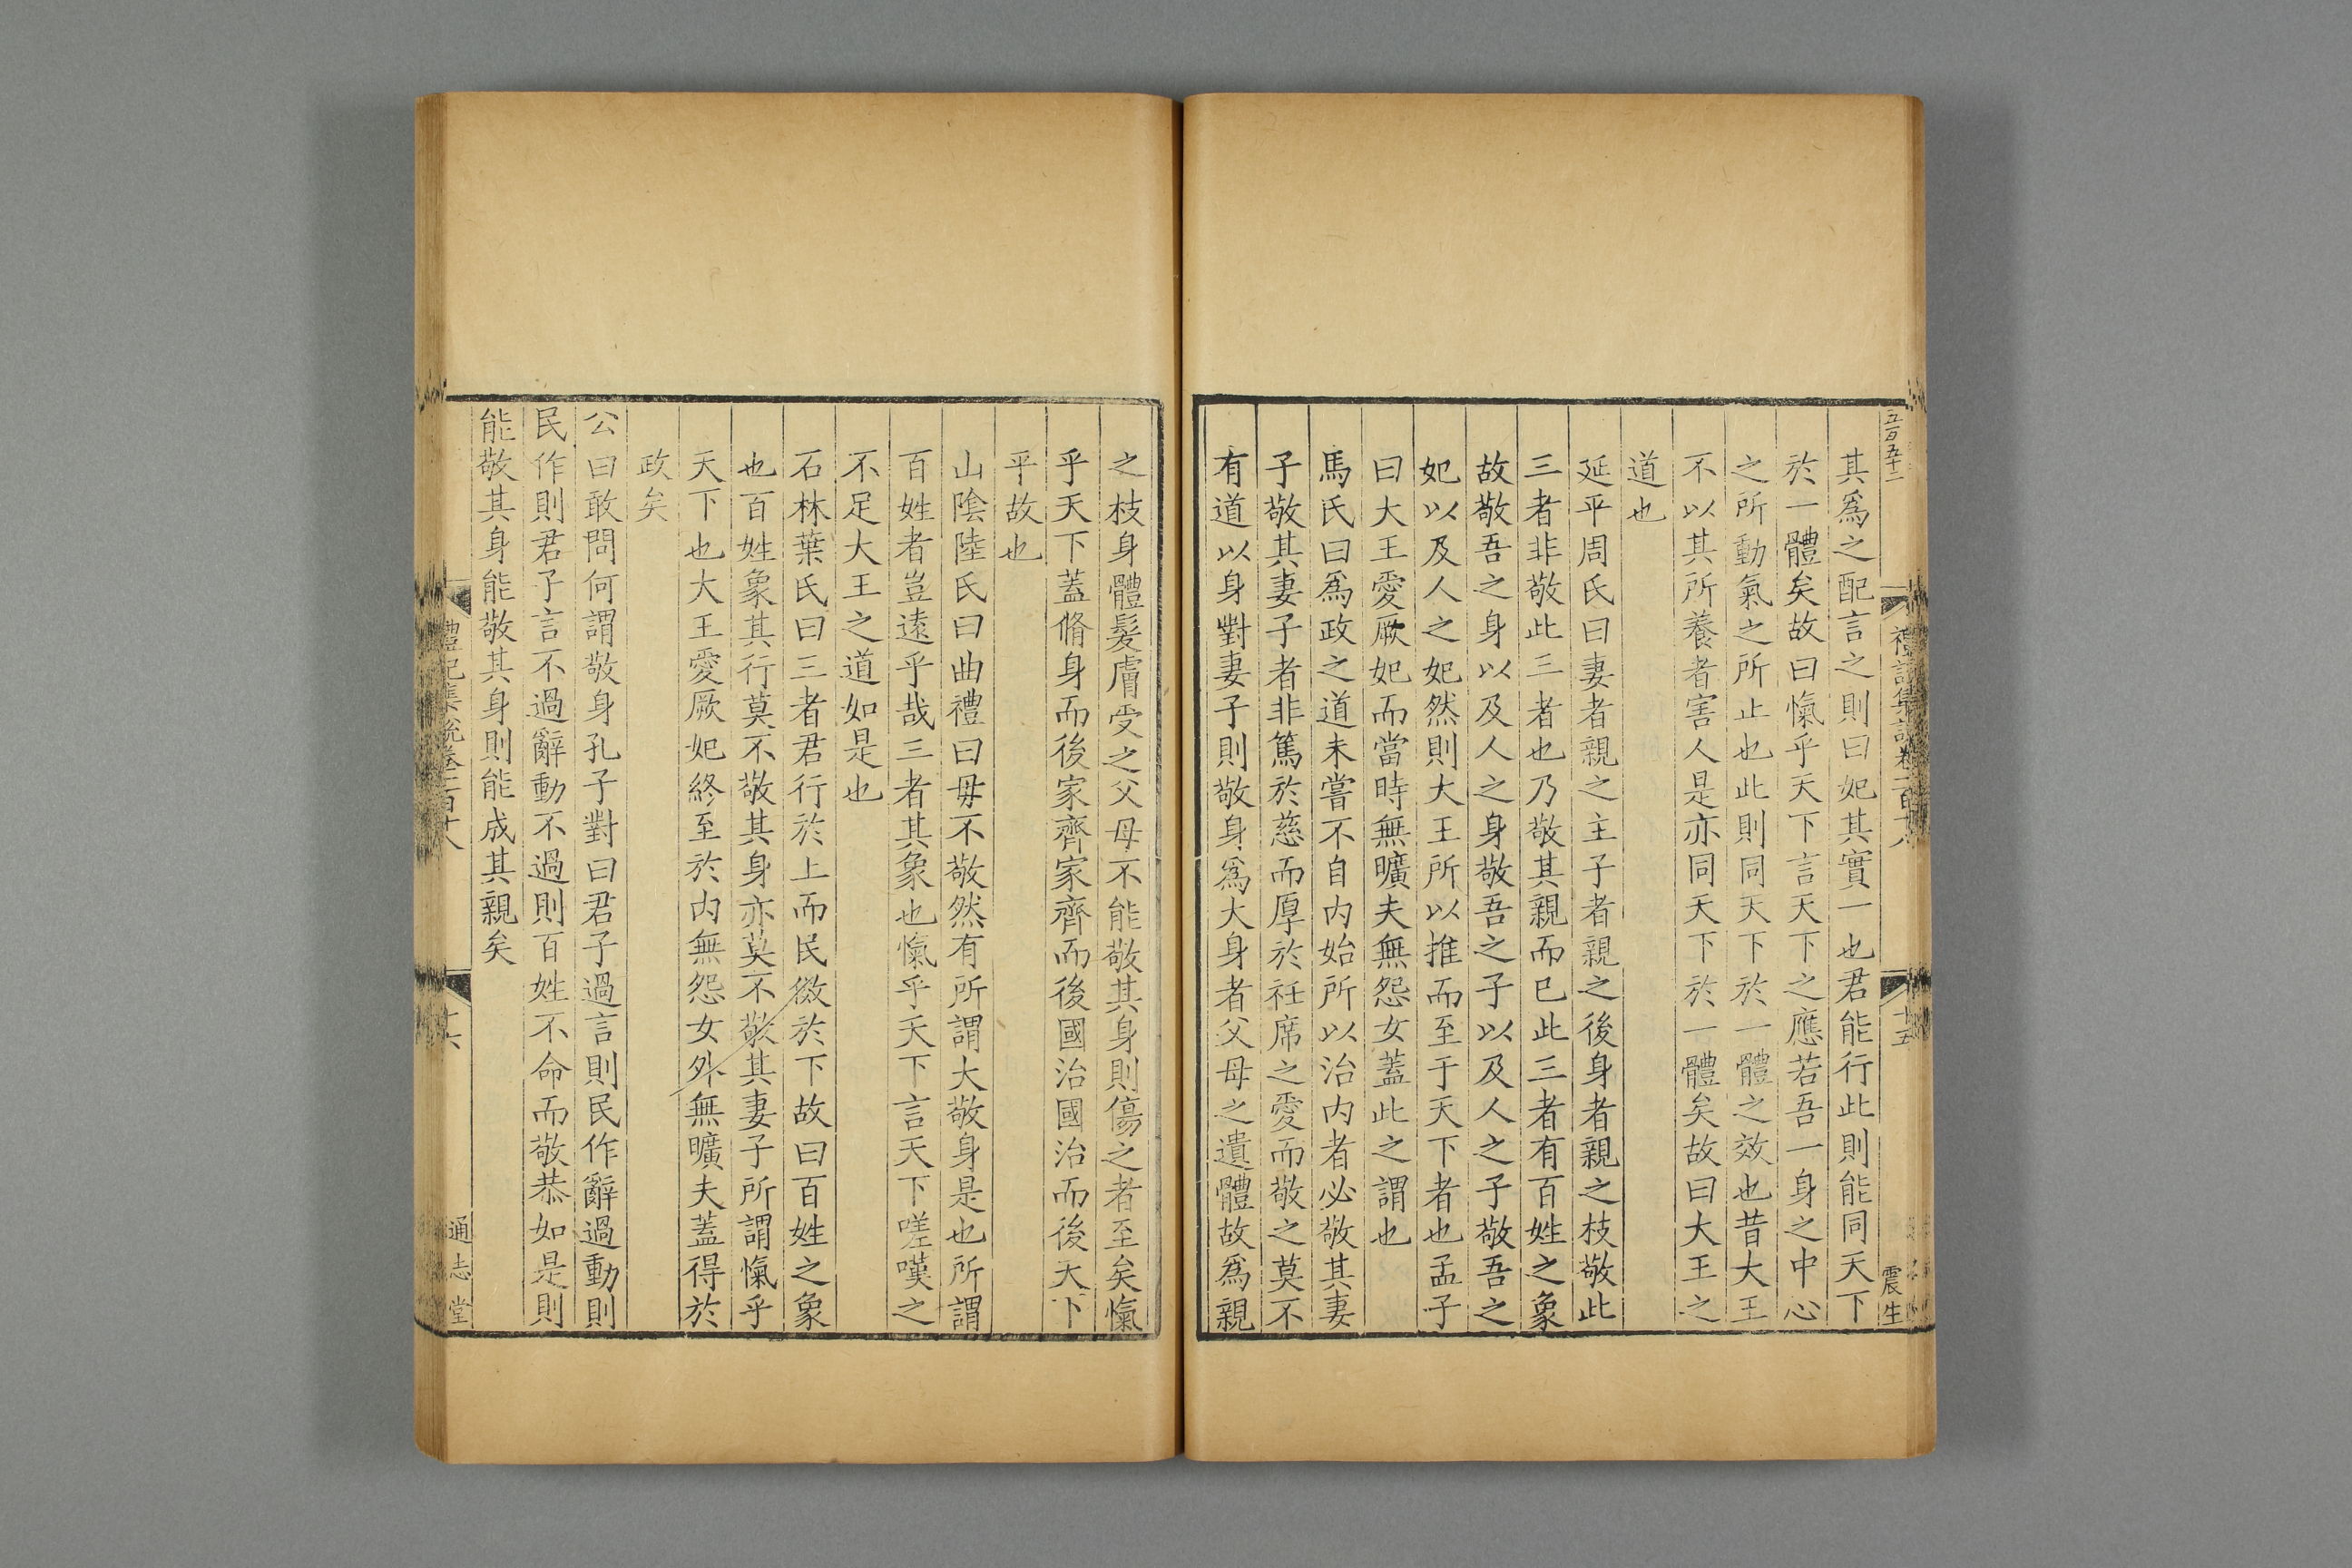 五百五十二
禮記集說卷一百十八
十五
震生
其爲之配言之則曰妃其實一也君能行此則能同天下
於一體矣故曰愾乎天下言天下之應若吾一身之中心
之所動氣之所止也此則同天下於一體之效也昔大王
不以其所養者害人是亦同天下於一體矣故曰大王之
道也
延平周氏曰妻者親之主子者親之後身者親之枝敬此
三者非敬此三者也乃敬其親而已此三者有百姓之象
故敬吾之身以及人之身敬吾之子以及人之子敬吾之
妃以及人之妃然則大王所以推而至于天下者也孟子
曰大王愛厥妃而當時無曠夫無怨女蓋此之謂也
馬氏曰爲政之道未嘗不自内始所以治内者必敬其妻
子敬其妻子者非篤於慈而厚於衽席之愛而敬之莫不
有道以身對妻子則敬身爲大身者父母之遺體故爲親
之枝身體髮膚受之父母不能敬其身則傷之者至矣愾
乎天下蓋脩身而後家齊家齊而後國治國治而後天下
平故也
山陰陸氏曰曲禮曰毋不敬然有所謂大敬身是也所謂
百姓者豈遠乎哉三者其象也愾乎天下言天下嗟嘆之
不足大王之道如是也
石林葉氏曰三者君行於上而民傚於下故曰百姓之象
也百姓象其行莫不敬其身亦莫不敬其妻子所謂愾乎
天下也大王愛厥妃終至於内無怨女外無曠夫蓋得於
政矣
公曰敢問何謂敬身孔子對曰君子過言則民作辭過動則
民作則君子言不過辭動不過則百姓不命而敬恭如是則
能敬其身能敬其身則能成其親矣
禮記集說卷一百十八
十六
通志堂